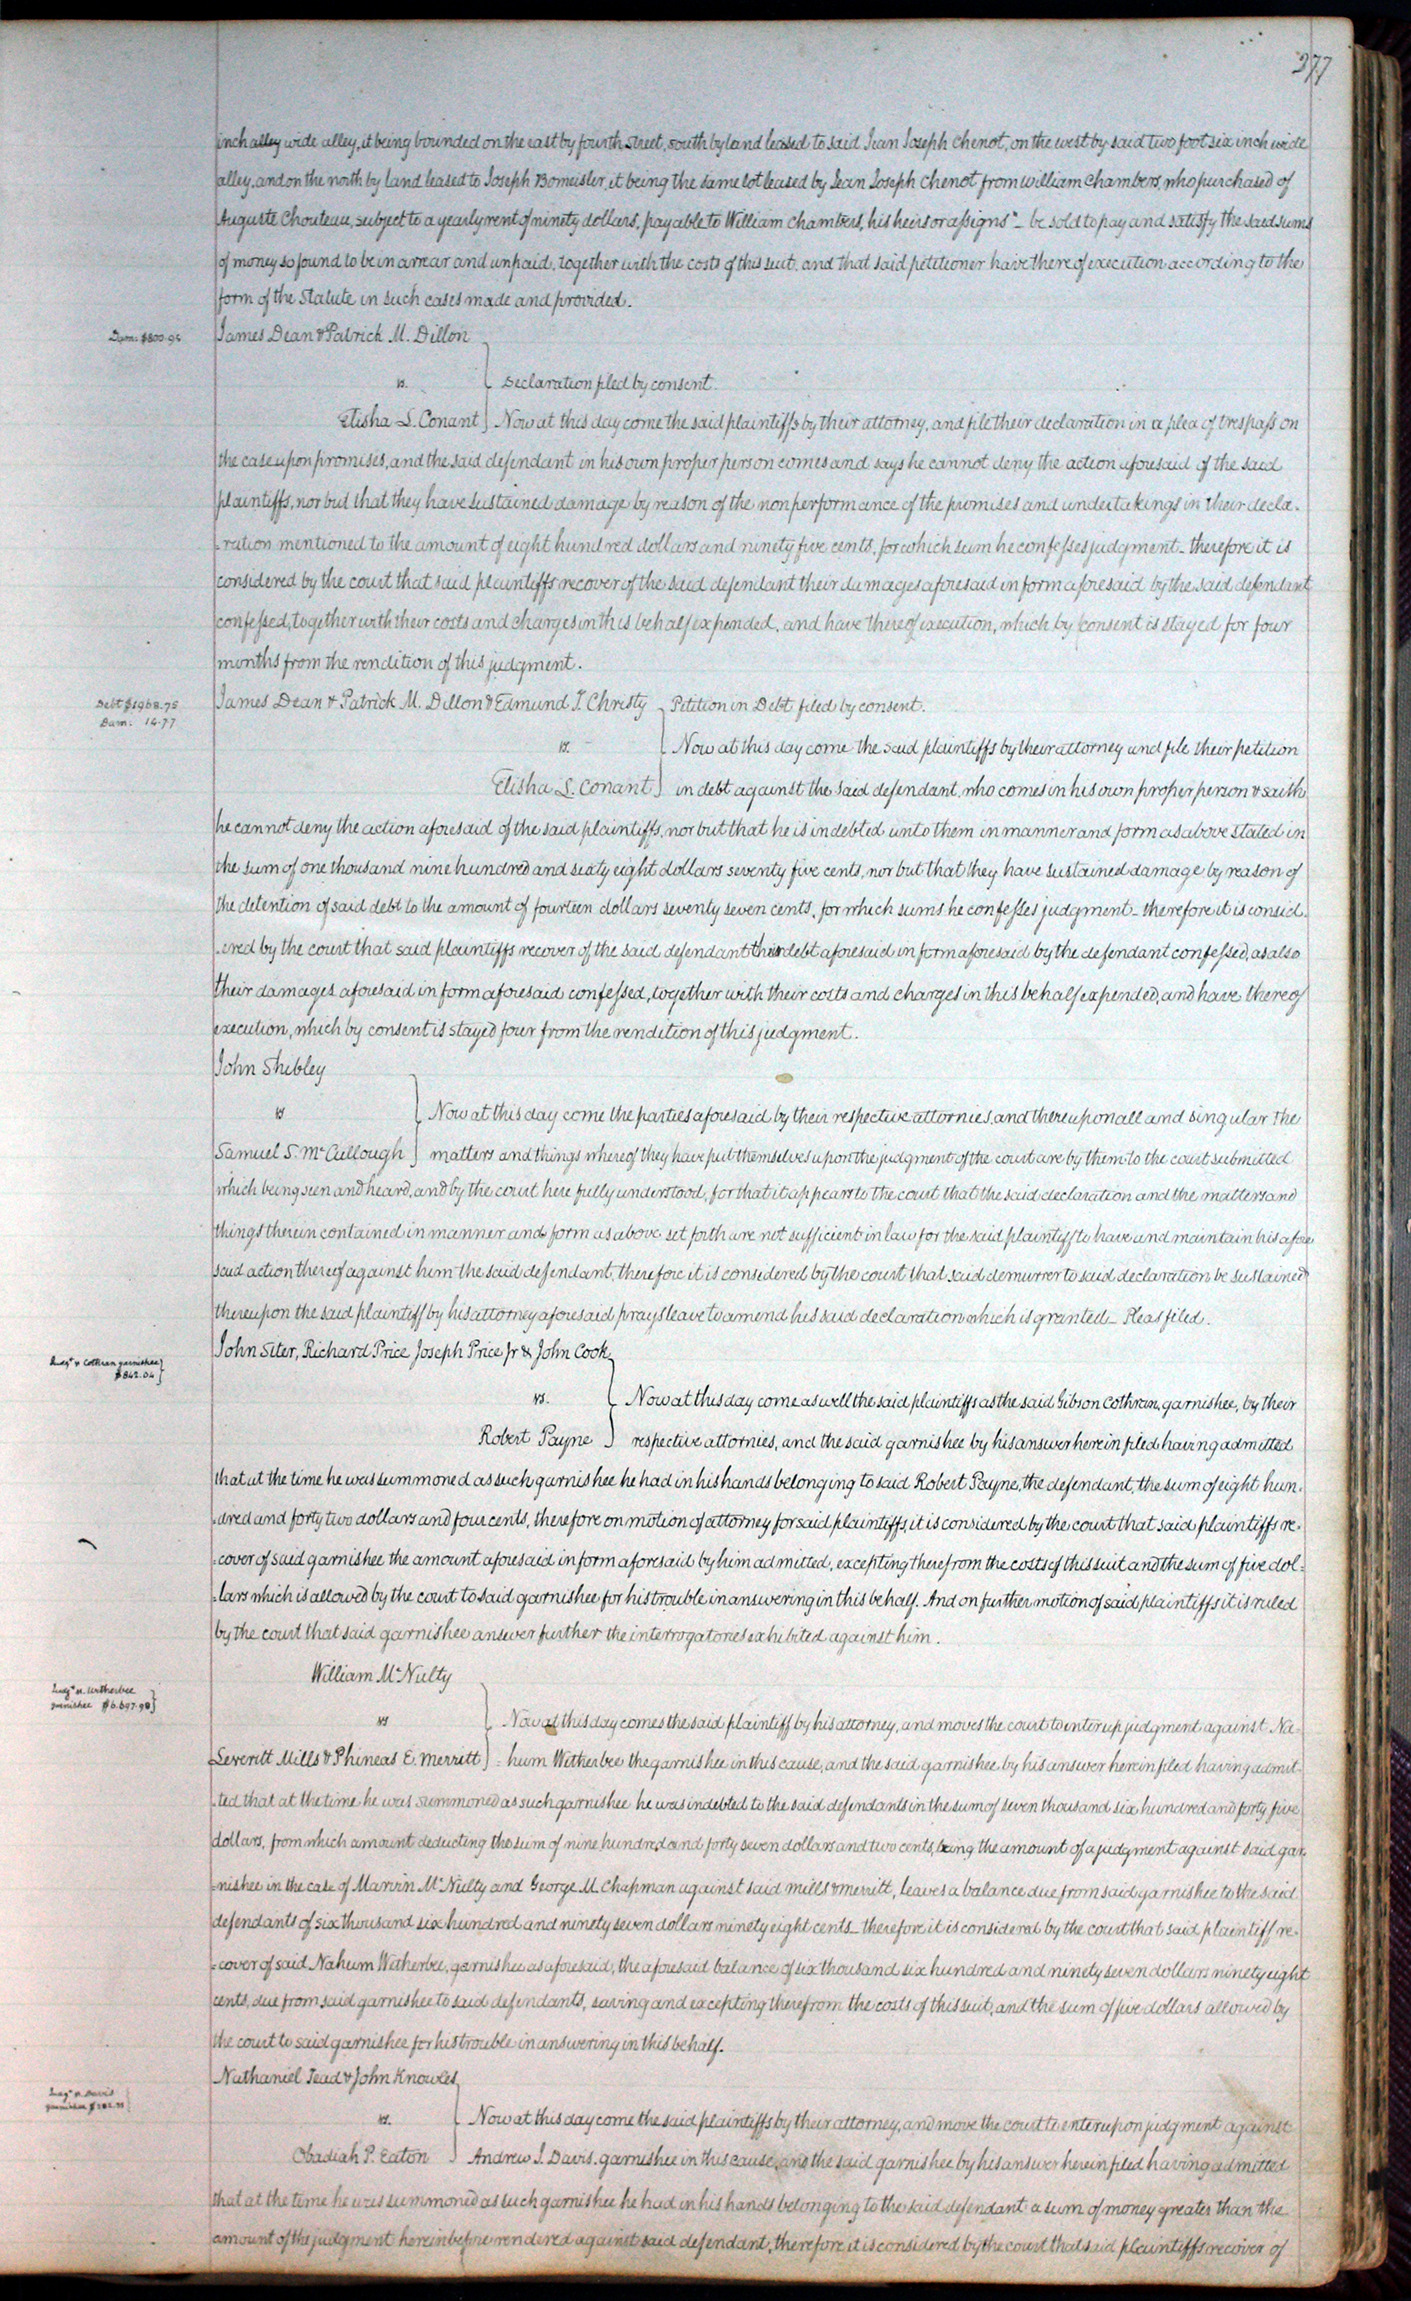 277
inch alley wide alley, it being bounded on the east by fourth street, south by land leased to said Jean Joseph Chenot, on the west by said two foot six inch wide
alley, and on the north by land leased to Joseph Bomeisler, it being the same lot leased by Jean Joseph Chenot from William Chambers, who purchased of
Auguste Chouteau, subject to a yearly rent of ninety dollars, payable to William Chambers, his heirs or assigns" - be sold to pay and satisfy the said sums
of money so found to be in arrear and unpaid, together with the costs of this suit, and that said petitioner have thereof execution according to the
form of the Statute in such cases made and provided.
Dam: $800.95
James Dean & Patrick M. Dillon
vs. Declaration filed by consent.
Elisha S. Conant Now at this day come the said plaintiffs by their attorney, and file their declaration in a plea of trespass on
the case upon promises, and the said defendant in his own proper person comes and says he cannot deny the action aforesaid of the said
plaintiffs, nor but that they have sustained damage by reason of the nonperformance of the promises and undertakings in their decla-
-ration mentioned to the amount of eight hundred dollars and ninety five cents, for which sum he confesses judgment - therefore it is
considered by the court that said plaintiffs recover of the said defendant their damages aforesaid in form aforesaid by the said defendant
confessed, together with their costs and charges in this behalf expended, and have thereof execution, which by consent is stayed for four
months from the rendition of this judgment.
Debt $1968.75
Dam: 14.77
James Dean & Patrick M. Dillon & Edmund T. Christy Petition in Debt filed by consent.
vs. Now at this day come the said plaintiffs by their attorney and file their petition
Elisha S. Conant in debt against the said defendant, who comes in his own proper person & saith
he cannot deny the action aforesaid of the said plaintiffs, nor but that he is indebted unto them in manner and form as above stated in
the sum of one thousand nine hundred and sixty eight dollars seventy five cents, nor but that they have sustained damage by reason of
the detention of said debt to the amount of fourteen dollars seventy seven cents, for which sums he confesses judgment - therefore it is consid-
-ered by the court that said plaintiffs recover of the said defendant their debt aforesaid in form aforesaid by the defendant confessed, as also
their damages aforesaid in form aforesaid confessed, together with their costs and charges in this behalf expended, and have thereof
execution, which by consent is stayed four from the rendition of this judgment.
John Shibley
vs Now at this day come the parties aforesaid by their respective attornies, and thereupon all and singular the
Samuel S. McCullough matters and things whereof they have put themselves upon the judgment of the court are by them to the court submitted
which being seen and heard, and by the court here fully understood, for that it appears to the court that the said declaration and the matters and
things therein contained in manner and form as above set forth are not sufficient in law for the said plaintiff to have and maintain his afore
said action thereof against him the said defendant, therefore it is considered by the court that said demurrer to said declaration be sustained
thereupon the said plaintiff by his attorney aforesaid prays leave to amend his said declaration which is granted - Pleas filed.
Judgt v Cothran garnishee
$842.04
John Siter, Richard Price Joseph Price Jr & John Cook
vs. Now at this day come as well the said plaintiffs as the said Gibson Cothran, garnishee, by their
Robert Payne respective attornies, and the said garnishee by his answer herein filed having admitted
that at the time he was summoned as such garnishee he had in his hands belonging to said Robert Payne, the defendant, the sum of eight hun-
-dred and forty two dollars and four cents, therefore on motion of attorney for said plaintiffs, it is considered by the court that said plaintiffs re-
-cover of said garnishee the amount aforesaid in form aforesaid by him admitted, excepting therefrom the costs of this suit and the sum of five dol-
-lars which is allowed by the court to said garnishee for his trouble in answering in this behalf. And on further motion of said plaintiffs it is ruled
by the court that said garnishee answer further the interrogatories exhibited against him.
Judgt v. Witherbee
garnishee $6.697.98
William McNulty
vs Now at this day comes the said plaintiff by his attorney, and moves the court to enter up judgment against Na-
Leveritt Mills & Phineas E. Merrett -hum Witherbee the garnishee in this cause, and the said garnishee by his answer herein filed having admit-
-ted that at the time he was summoned as such garnishee he was indebted to the said defendants in the sum of seven thousand six hundred and forty five
dollars, from which amount deducting the sum of nine hundred and forty seven dollars and two cents, being the amount of a judgment against said gar
-nishee in the case of Marvin McNulty and George M. Chapman against said mills & merritt, leaves a balance due from said garnishee to the said
defendants of six thousand six hundred and ninety seven dollars ninety eight cents - therefore it is considered by the court that said plaintiff re-
-cover of said Nahum Witherbee, garnishee as aforesaid, the aforesaid balance of six thousand six hundred and ninety seven dollars ninety eight
cents, due from said garnishee to said defendants, saving and excepting therefrom the costs of this suit, and the sum of five dollars allowed by
the court to said garnishee for his trouble in answering in this behalf.
Judgt v. Davis
garnishee
Nathaniel Tead & John Knowles
vs. Now at this day come the said plaintiffs by their attorney, and move the court to enter upon judgment against
Obadiah P. Eaton Andrew J. Davis, garnishee in this cause, and the said garnishee by his answer herein filed having admitted
that at the time he was summoned as such garnishee he had in his hands belonging to the said defendant a sum of money greater than the
amount of the judgment hereinbefore rendered against said defendant, therefore it is considered by the court that said plaintiffs recover of